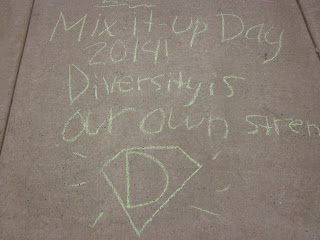 Mix It-up Day
2014!
Diversity is
our own stren
D